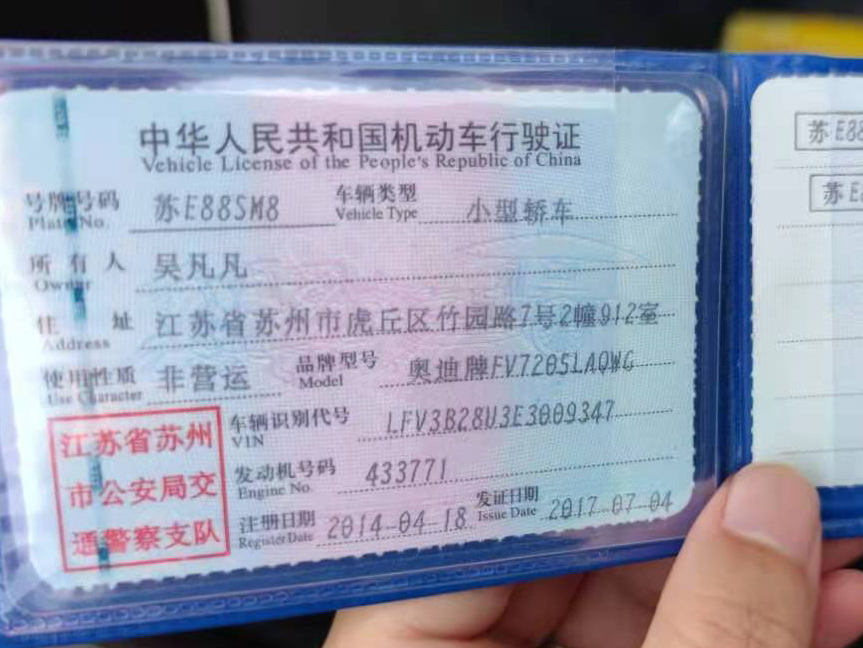 中华人民共和国机动车行驶证
Vehicle License of the People's Republic of China
号牌号码 苏E88SM8 车辆类型 小型轿车
Plate No. Vehicle Type
所有人 吴凡凡
Owner
住址 江苏省苏州市虎丘区竹园路7号2幢912室
Address
使用性质 非营运 品牌型号 奥迪牌FV7205LAQWG
Use Character Model
车辆识别代号 LFV3B28U3E3009347
VIN
发动机号码 433771
Engine No.
注册日期 2014-04-18 发证日期 2017-07-04
Register Date Issue Date
江苏省苏州
市公安局交
通警察支队
苏E88
苏E